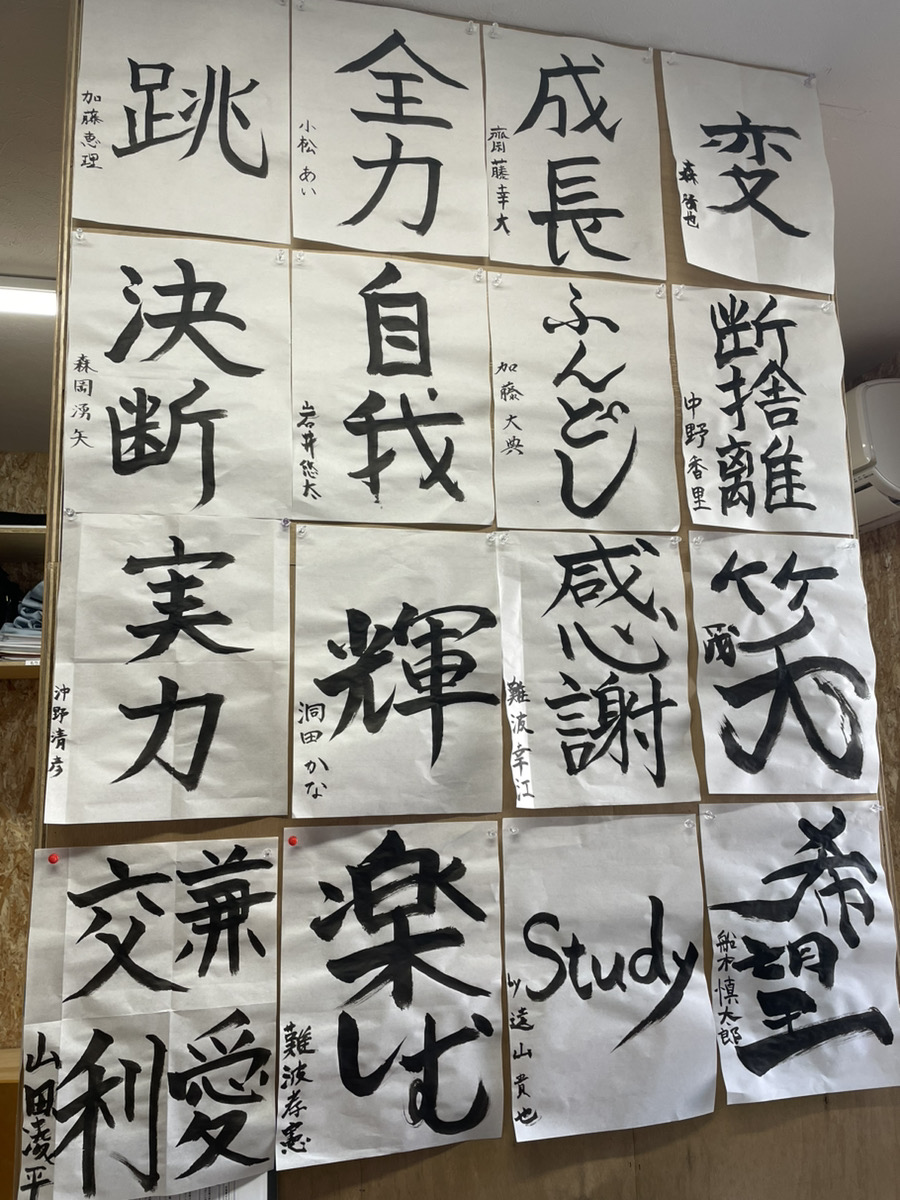 跳
加藤恵理
全力
小松 あい
成長
齋藤幸大
変
森 清也
決断
森岡湧矢
自我
岩井悠太
ふんどし
加藤大典
断捨離
中野香里
実力
沖野清彦
輝
洞田かな
感謝
難波幸江
笑
兼愛
交利
山田凌平
楽しむ
難波孝憲
Study
by 遠山貴也
希望
船木慎太郎